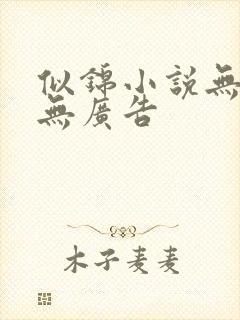 似錦小說無
無廣告
木子麦麦